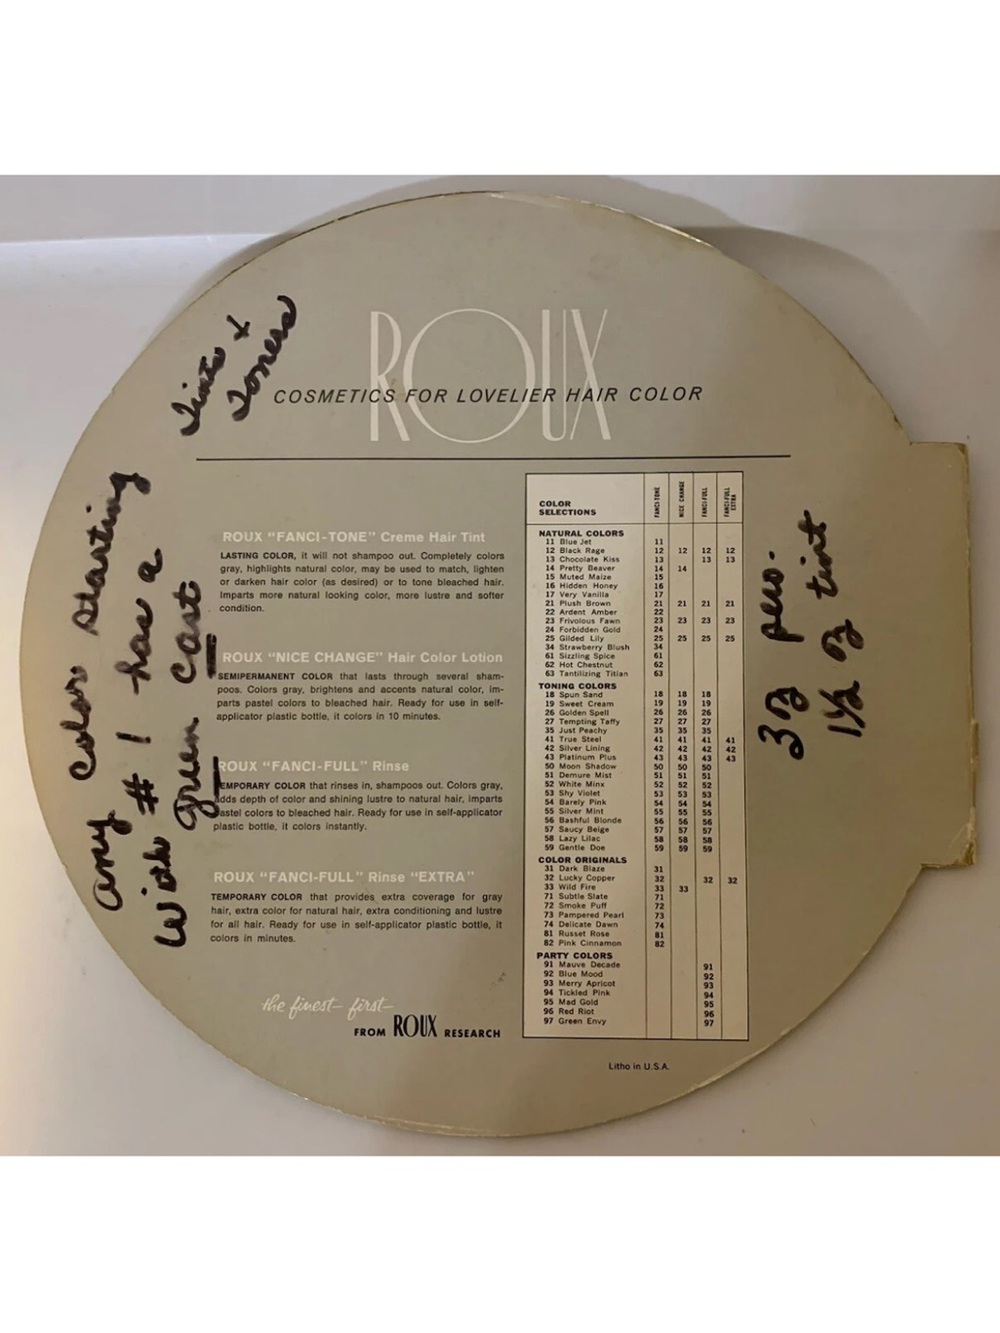 Tints &
Toners
ROUX
COSMETICS FOR LOVELIER HAIR COLOR
any color starting
with #1 has a
green cast
ROUX "FANCI-TONE" Creme Hair Tint
LASTING COLOR, it will not shampoo out. Completely colors
gray, highlights natural color, may be used to match, lighten
or darken hair color (as desired) or to tone bleached hair.
Imparts more natural looking color, more lustre and softer
condition.
ROUX "NICE CHANGE" Hair Color Lotion
SEMIPERMANENT COLOR that lasts through several sham-
poos. Colors gray, brightens and accents natural color, im-
parts pastel colors to bleached hair. Ready for use in self-
applicator plastic bottle, it colors in 10 minutes.
ROUX "FANCI-FULL" Rinse
TEMPORARY COLOR that rinses in, shampoos out. Colors gray,
adds depth of color and shining lustre to natural hair, imparts
pastel colors to bleached hair. Ready for use in self-applicator
plastic bottle, it colors instantly.
ROUX "FANCI-FULL" Rinse "EXTRA"
TEMPORARY COLOR that provides extra coverage for gray
hair, extra color for natural hair, extra conditioning and lustre
for all hair. Ready for use in self-applicator plastic bottle, it
colors in minutes.
the finest - first -
FROM ROUX RESEARCH
COLOR
SELECTIONS
FANCI-TONE
NICE CHANGE
FANCI-FULL
FANCI-FULL
EXTRA
NATURAL COLORS
11 Blue Jet 11
12 Black Rage 12 12 12 12
13 Chocolate Kiss 13 13 13
14 Pretty Beaver 14 14
15 Muted Maize 15
16 Hidden Honey 16
17 Very Vanilla 17
21 Plush Brown 21 21 21 21
22 Ardent Amber 22
23 Frivolous Fawn 23 23 23 23
24 Forbidden Gold 24
25 Gilded Lily 25 25 25 25
34 Strawberry Blush 34
61 Sizzling Spice 61
62 Hot Chestnut 62
63 Tantilizing Titian 63
TONING COLORS
18 Spun Sand 18 18 18
19 Sweet Cream 19 19 19
26 Golden Spell 26 26 26
27 Tempting Taffy 27 27 27
35 Just Peachy 35 35 35
41 True Steel 41 41 41 41
42 Silver Lining 42 42 42 42
43 Platinum Plus 43 43 43 43
50 Moon Shadow 50 50 50
51 Demure Mist 51 51 51
52 White Minx 52 52 52
53 Shy Violet 53 53 53
54 Barely Pink 54 54 54
55 Silver Mint 55 55 55
56 Bashful Blonde 56 56 56
57 Saucy Beige 57 57 57
58 Lazy Lilac 58 58 58
59 Gentle Doe 59 59 59
COLOR ORIGINALS
31 Dark Blaze 31
32 Lucky Copper 32 32 32
33 Wild Fire 33 33
71 Subtle Slate 71
72 Smoke Puff 72
73 Pampered Pearl 73
74 Delicate Dawn 74
81 Russet Rose 81
82 Pink Cinnamon 82
PARTY COLORS
91 Mauve Decade 91
92 Blue Mood 92
93 Merry Apricot 93
94 Tickled Pink 94
95 Mad Gold 95
96 Red Riot 96
97 Green Envy 97
Litho in U.S.A.
3 oz pero.
1½ oz tint